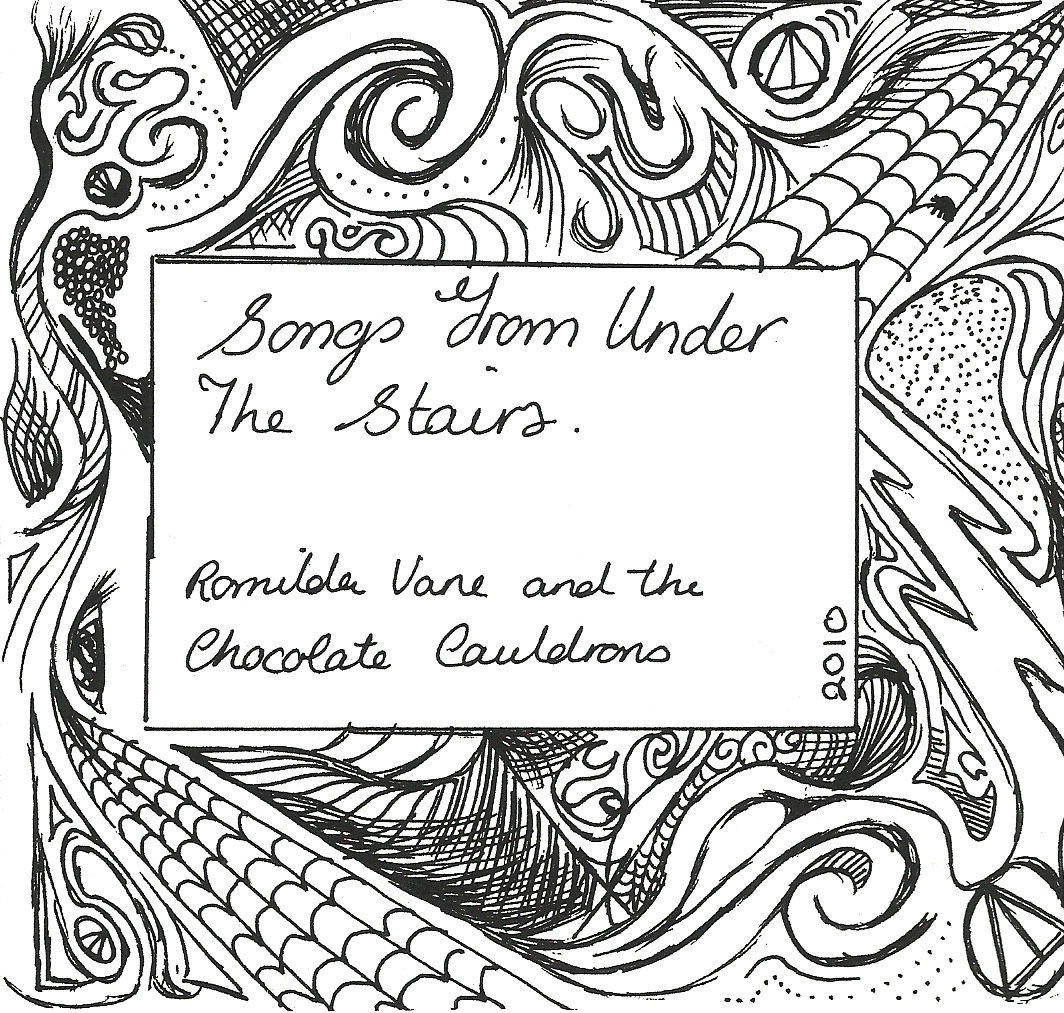 Songs from Under
The Stairs.
Romilda Vane and the
Chocolate Cauldrons
2010